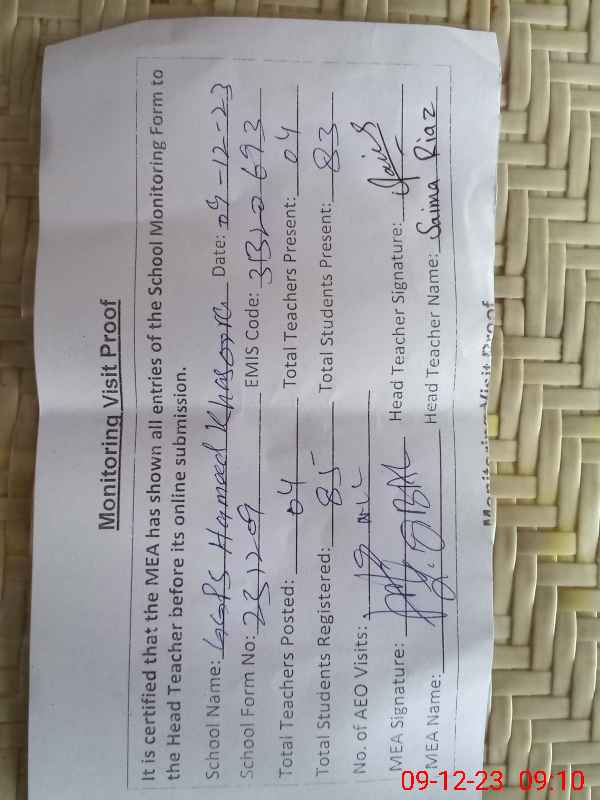 Monitoring Visit Proof
It is certified that the MEA has shown all entries of the School Monitoring Form to
the Head Teacher before its online submission.
School Name: GGPS Hamad Date: 09-12-23
School Form No: 231209 EMIS Code: 31320693
Total Teachers Posted: 04 Total Teachers Present: 04
Total Students Registered: 85 Total Students Present: 83
No. of AEO Visits:
MEA Signature: Head Teacher Signature:
MEA Name: Head Teacher Name: Saima Riaz
Monitoring Visit Proof
09-12-23 09:10